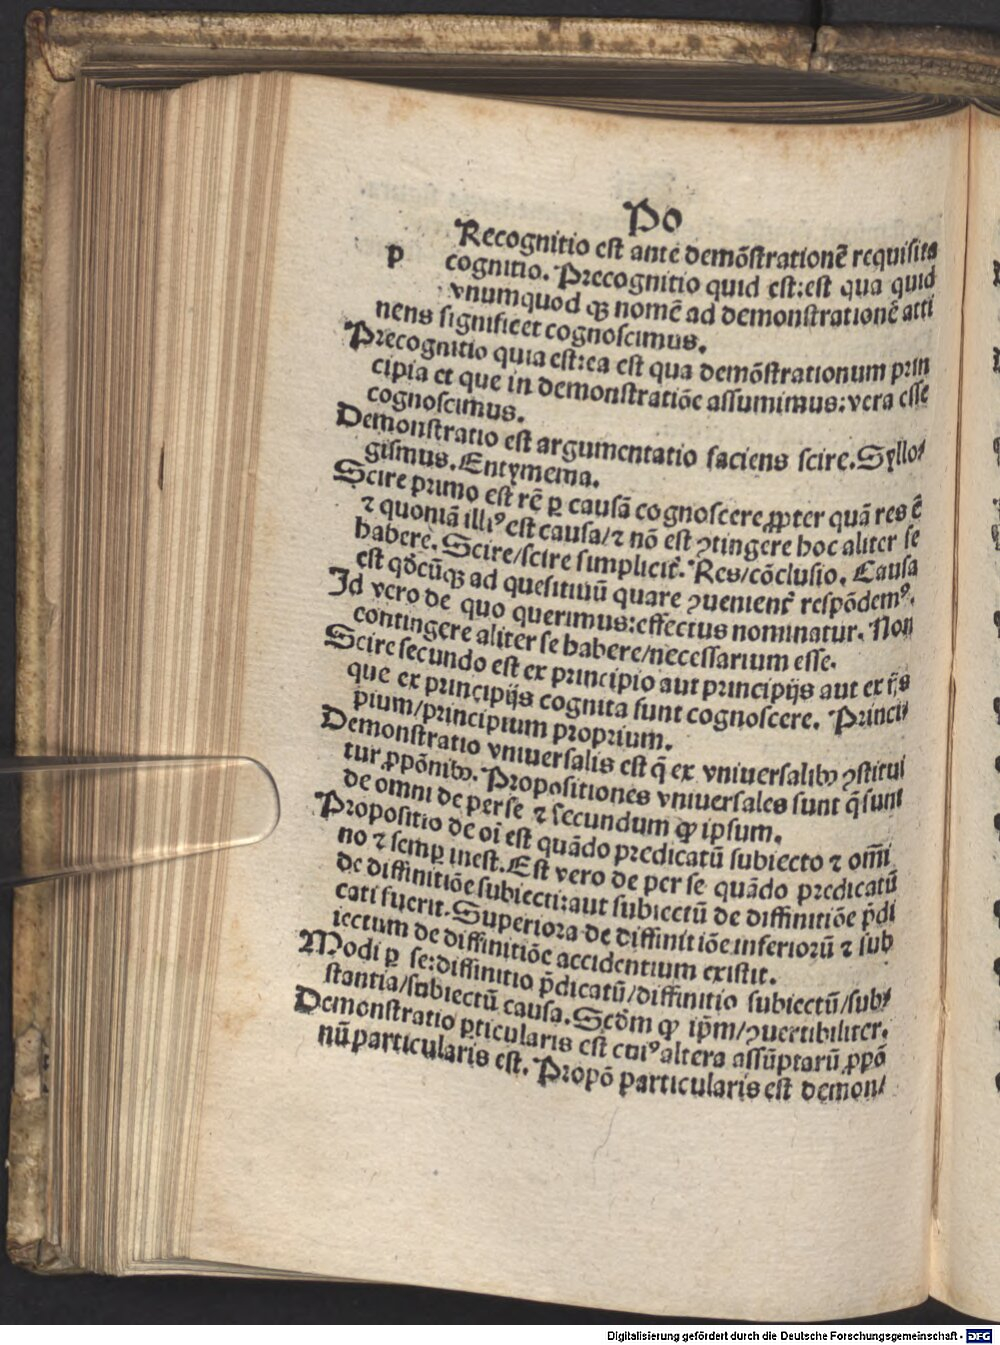 Po
p Recognitio est ante demōstrationē requisita
cognitio. Precognitio quid est:est qua quid
vnumquod qꝫ nomē ad demonstrationē atti
nens significet cognoscimus.
Precognitio quia est:ea est qua demōstrationum prin
cipia et que in demonstratiōe assumimus:vera esse
cognoscimus.
Demonstratio est argumentatio faciens scire. Syllo/
gismus. Entymema.
Scire primo est rē ꝑ causā cognoscere ꝓpter quā res ē
⁊ quoniā illiꝰ est causa/⁊ nō est ꝯtingere hoc aliter se
habere. Scire/scire simplicit̄. Res/cōclusio. Causa
est qd̄cūqꝫ ad quesitiuū quare ꝯuenient̄ respōdemꝰ.
Id vero de quo querimus:effectus nominatur. Non
contingere aliter se habere/necessarium esse.
Scire secundo est ex principio aut principijs aut ex ijs
que ex principijs cognita sunt cognoscere. Princi/
pium/principium proprium.
Demonstratio vniuersalis est q̄ ex vniuersalibꝫ ꝯstitui
tur ꝓpōnibꝫ. Propositiones vniuersales sunt q̄ sunt
de omni de per se ⁊ secundum ꝙ ipsum.
Propositio de oī est quādo predicatū subiecto ⁊ om̄i
no ⁊ semꝑ inest. Est vero de per se quādo predicatū
de diffinitiōe subiecti:aut subiectū de diffinitiōe p̄di
cati fuerit. Superiora de diffinitiōe inferiorū ⁊ sub
iectum de diffinitiōe accidentium existit.
Modi ꝑ se:diffinitio p̄dicatū/diffinitio subiectū/sub/
stantia/subiectū causa. Scd̄m ꝙ ip̄m/ꝯuertibiliter.
Demonstratio ꝑticularis est cuiꝰ altera assūptarū ꝓpō
nū particularis est. Propō particularis est demon/
Digitalisierung gefördert durch die Deutsche Forschungsgemeinschaft - DFG